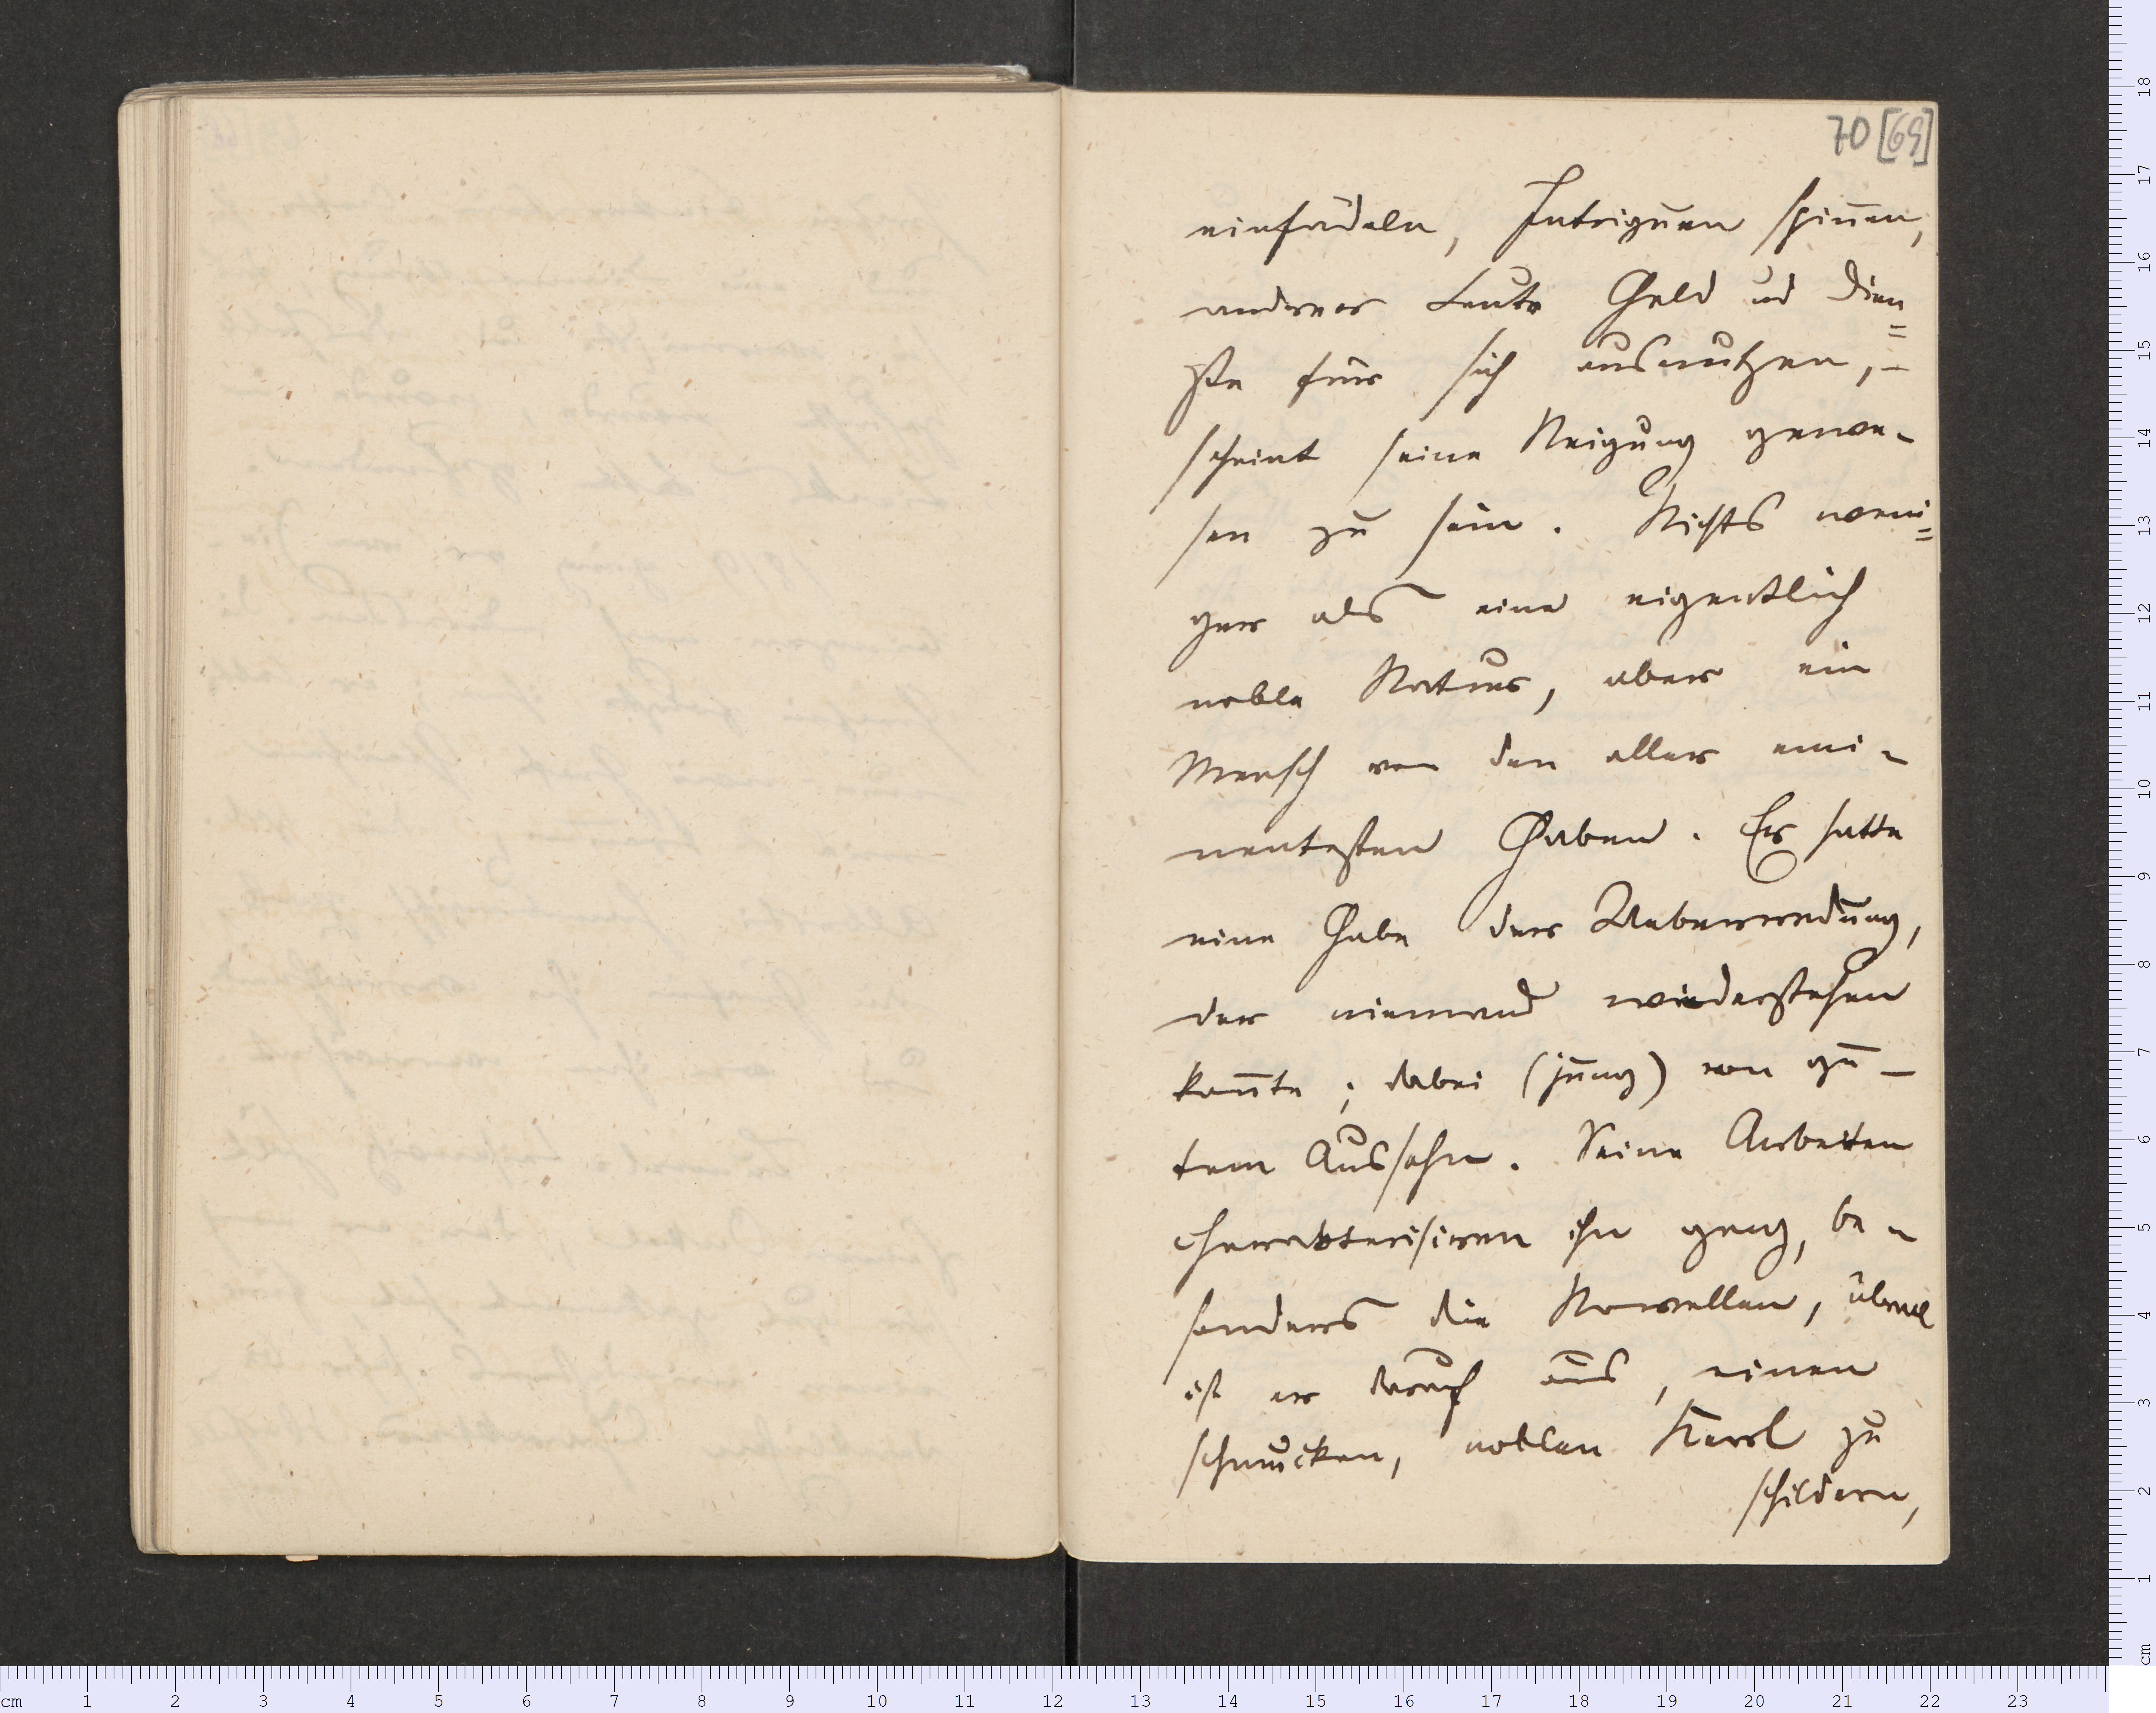 70 [69]
einfädeln, Intriguen spin̅en,
anderer Leute Geld und Dien=
ste für sich ausnutzen, –
scheint seine Neigung gewe-
sen zu sein. Nichts weni=
ger als eine eigentlich
noble Natur, aber ein
Mensch von den aller emi-
nentesten Gaben. Er hatte
eine Gabe der Ueberredung,
der niemand wiederstehen
kon̅te; dabei (jung) von gu-
tem Aussehn. Seine Arbeiten
charakterisiren ihn ganz, be-
sonders die Novellen, überall
ist er drauf aus, einen
schmucken, noblen Kerl zu
schildern,